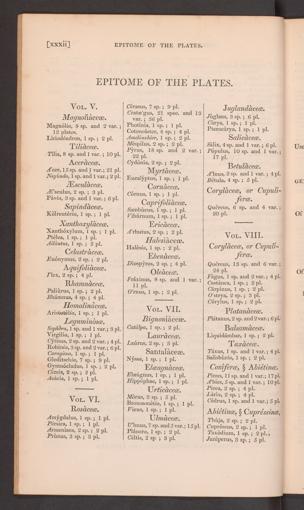 [xxxii]
EPITOME OF THE PLATES.
EPITOME OF THE PLATES.
VOL. V.
Magnoliàceæ.
Magnòlia, 8 sp. and 2 var.;
12 plates.
Liriodéndron, 1 sp.; 2 pl.
Tiliàceæ.
Tília, 8 sp. and 1 var.; 10 pl.
Aceràceæ.
A`cer, 15 sp. and 1 var.; 21 pl.
Negúndo, 1 sp. and 1 var.; 2 pl.
Æsculàceæ.
Æ'sculus, 2 sp.; 3 pl.
Pàvia, 3 sp. and 1 var.; 6 pl.
Sapindàceæ.
Kölreutèria, 1 sp.; 1 pl.
Xanthoxylàceæ.
Xanthóxylum, 1 sp.; 1 pl.
Ptèlea, 1 sp.; 1 pl.
Ailántus, 1 sp.; 2 pl.
Celastràceæ.
Euónymus, 2 sp.; 2 pl.
Aquifoliàceæ.
I`lex, 2 sp.; 4 pl.
Rhamnàceæ.
Paliùrus, 1 sp.; 2 pl.
Rhámnus, 4 sp.; 4 pl.
Homalinàceæ.
Aristotèlia, 1 sp.; 1 pl.
Leguminòsæ.
Virgília, 1 sp.; 1 pl.
Cýtisus, 2 sp. and 2 var.; 4 pl.
Robínia, 2 sp. and 2 var.; 6 pl.
Caragàna, 1 sp.; 1 pl.
Gledítschia, 7 sp.; 9 pl.
Gymnócladus, 1 sp.; 2 pl.
Cércis, 2 sp.; 2 pl.
Acàcia, 1 sp.; 1 pl.
VOL. VI.
Rosàceæ.
Amýgdalus, 1 sp.; 1 pl.
Pérsica, 1 sp.; 1 pl.
Armenìaca, 2 sp.; 2 pl.
Prùnus, 3 sp.; 3 pl.
Cérasus, 7 sp.; 9 pl.
Cratæ'gus, 21 spec. and 12
var.; 36 pl.
Photínia, 1 sp.; 1 pl.
Cotoneáster, 4 sp.; 4 pl.
Amelánchier, 1 sp.; 2 pl.
Méspilus, 2 sp.; 2 pl.
Pỳrus, 18 sp. and 2 var.;
22 pl.
Cydònia, 2 sp.; 2 pl.
Myrtàceæ.
Eucalýptus, 1 sp.; 1 pl.
Cornàceæ.
Córnus, 1 sp.; 1 pl.
Caprifoliàceæ.
Sambùcus, 1 sp.; 1 pl.
Vibúrnum, 1 sp.; 1 pl.
Ericàceæ.
A'rbutus, 2 sp.; 2 pl.
Halesiàceæ.
Halèsia, 1 sp.; 2 pl.
Ebenàceæ.
Diospỳros, 2 sp.; 4 pl.
Oleàceæ.
Fráxinus, 8 sp. and 1 var.;
11 pl.
O'rnus, 1 sp.; 2 pl.
VOL. VII.
Bignoniàceæ.
Catálpa, 1 sp.; 2 pl.
Lauràceæ.
Laúrus, 2 sp.; 3 pl.
Santalàceæ.
Nýssa, 1 sp.; 1 pl.
Elæagnàceæ.
Elæágnus, 1 sp.; 1 pl.
Hippóphae, 1 sp.; 1 pl.
Urticàceæ.
Mòrus, 2 sp.; 5 pl.
Broussonètia, 1 sp.; 1 pl.
Fìcus, 1 sp.; 1 pl.
Ulmàceæ.
U'lmus, 7 sp. and 3 var.; 15 pl.
Plánera, 1 sp.; 2 pl.
Céltis, 2 sp.; 3 pl.
Juglandàceæ.
Jùglans, 3 sp.; 6 pl.
Càrya, 1 sp.; 1 pl.
Pterocárya, 1 sp.; 1 pl.
Salicàceæ.
Sàlix, 4 sp. and 1 var.; 6 pl.
Pópulus, 10 sp. and 1 var.;
17 pl.
Betulàceæ.
A'lnus, 2 sp. and 2 var.; 4 pl.
Bétula, 4 sp.; 5 pl.
Corylàceæ, or Cupulíferæ.
Quércus, 6 sp. and 4 var.;
20 pl.
VOL. VIII.
Corylàceæ, or Cupulíferæ.
Quércus, 13 sp. and 6 var.;
24 pl.
Fàgus, 1 sp. and 2 var.; 4 pl.
Castànea, 1 sp.; 2 pl.
Carpìnus, 1 sp.; 2 pl.
O'strya, 2 sp.; 3 pl.
Córylus, 1 sp.; 2 pl.
Platanàceæ.
Plátanus, 2 sp. and 2 var.; 6 pl.
Balsamàceæ.
Liquidámbar, 1 sp.; 2 pl.
Taxàceæ.
Táxus, 1 sp. and 1 var.; 4 pl.
Salisbùria, 1 sp.; 2 pl.
Coníferæ, § Abiétinæ.
Pìnus, 11 sp. and 1 var.; 17 pl.
A`bies, 5 sp. and 1 var.; 10 pl.
Pìcea, 2 sp.; 4 pl.
Lárix, 2 sp.; 4 pl.
Cèdrus, 1 sp. and 1 var.; 5 pl.
Abiétinæ, § Cupréssinæ.
Thùja, 2 sp.; 2 pl.
Cupréssus, 2 sp.; 1 pl.
Taxòdium, 1 sp.; 2 pl.
Juníperus, 3 sp.; 5 pl.